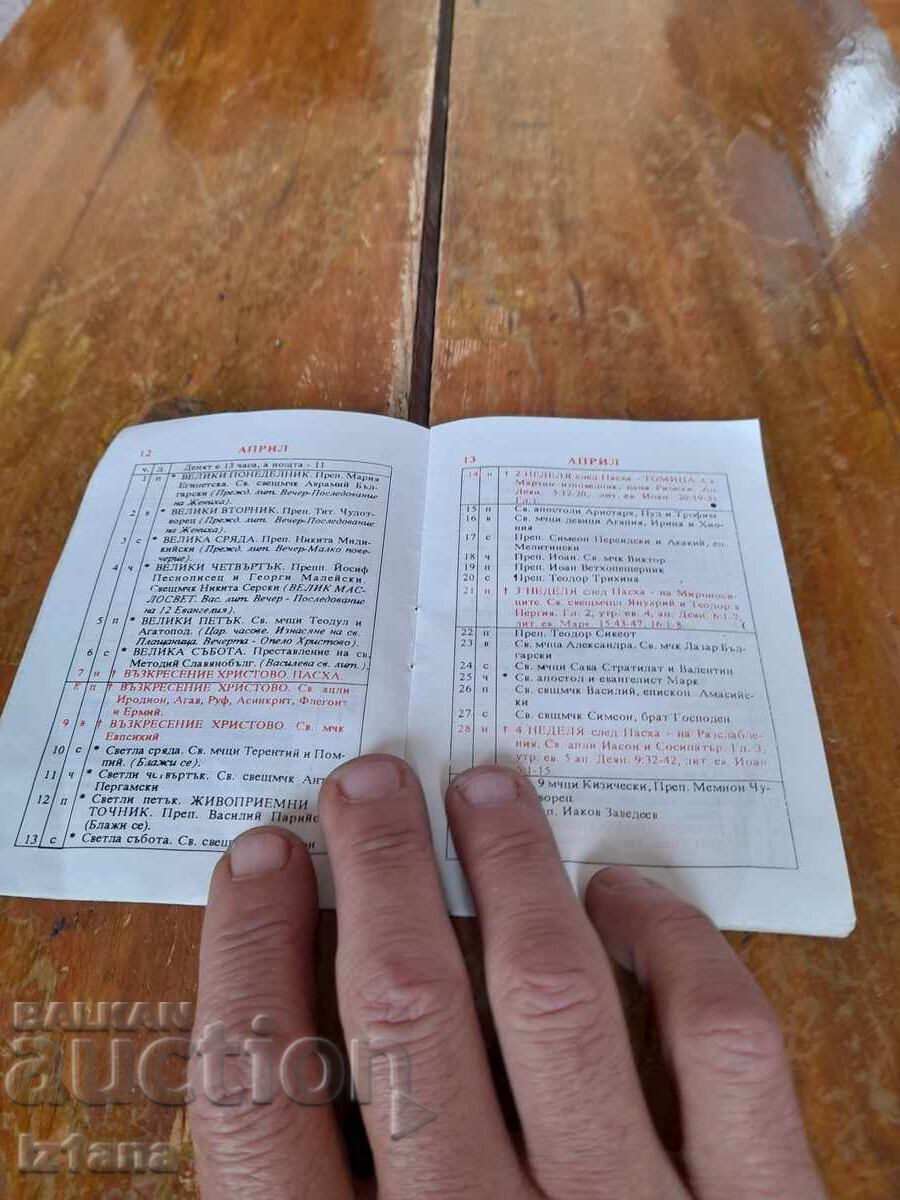 12 АПРИЛ
ч. д. Денят е 13 часа, а нощта - 11
1 п * ВЕЛИКИ ПОНЕДЕЛНИК. Преп. Мария
Египетска. Св. свещмчк Аврамий Бъл-
гарски (Прежд. лит. Вечер-Последование
на Жениха).
2 в * ВЕЛИКИ ВТОРНИК. Преп. Тит. Чудот-
ворец (Прежд. лит. Вечер-Последование
на Жениха).
3 с * ВЕЛИКА СРЯДА. Преп. Никита Миди-
кийски (Прежд. лит. Вечер-Малко пове-
черие).
4 ч * ВЕЛИКИ ЧЕТВЪРТЪК. Препп. Йосиф
Песнописец и Георги Малейски.
Свещмчк Никита Серски (ВЕЛИК МАС-
ЛОСВЕТ. Вас. лит. Вечер - Последование
на 12 Евангелия).
5 п * ВЕЛИКИ ПЕТЪК. Св. мчци Теодул и
Агатопод. (Цар. часове. Изнасяне на св.
Плащаница. Вечерта - Опело Христово).
6 с * ВЕЛИКА СЪБОТА. Преставление на св.
Методий Славянобълг. (Василева св. лит.).
7 н † ВЪЗКРЕСЕНИЕ ХРИСТОВО. ПАСХА.
8 п † ВЪЗКРЕСЕНИЕ ХРИСТОВО. Св. апли
Иродион, Агав, Руф, Асинкрит, Флегонт
и Ермий.
9 в † ВЪЗКРЕСЕНИЕ ХРИСТОВО. Св. мчк
Евпсихий
10 с * Светла сряда. Св. мчци Терентий и Пом-
пий. (Блажи се).
11 ч * Светли четвъртък. Св. свещмчк Ант
Пергамски
12 п * Светли петък. ЖИВОПРИЕМНИ
ТОЧНИК. Преп. Василий Парийс
(Блажи се).
13 с * Светла събота. Св. свещ
13 АПРИЛ
14 н † 2 НЕДЕЛЯ след Пасха - ТОМИНА. Св.
Мартин изповедник, папа Римски. Ап.
Деян. 5:12-20, лит. ев. Иоан 20:19-31
Гл. 1.
15 п Св. апостоли Аристарх, Пуд и Трофим
16 в Св. мчци девици Агапия, Ирина и Хио-
ния
17 с Преп. Симеон Персидски и Акакий, еп.
Мелитински
18 ч Преп. Иоан. Св. мчк Виктор
19 п Преп. Иоан Ветхопещерник
20 с Преп. Теодор Трихина
21 н † 3 НЕДЕЛЯ след Пасха - на Мироноси-
ците. Св. свещмчци Януарий и Теодор в
Пергия. Гл. 2, утр. ев. 4, ап. Деян. 6:1-7,
лит. ев. Марк. 15:43-47, 16:1-8.
22 п Преп. Теодор Сикеот
23 в Св. мчца Александра. Св. мчк Лазар Бъл-
гарски
24 с Св. мчци Сава Стратилат и Валентин
25 ч * Св. апостол и евангелист Марк
26 п Св. свщмчк Василий, епископ Амасийс-
ки
27 с Св. свщмчк Симеон, брат Господен
28 н † 4 НЕДЕЛЯ след Пасха - на Разслабе-
ния. Св. апли Иасон и Сосипатър. Гл. 3,
утр. ев. 5 ап. Деян. 9:32-42, лит. ев. Иоан
5:1-15
9 мчци Кизически, Преп. Мемнон Чу-
ворец
п. Иаков Заведеев
BALKAN
auction
iz1ana